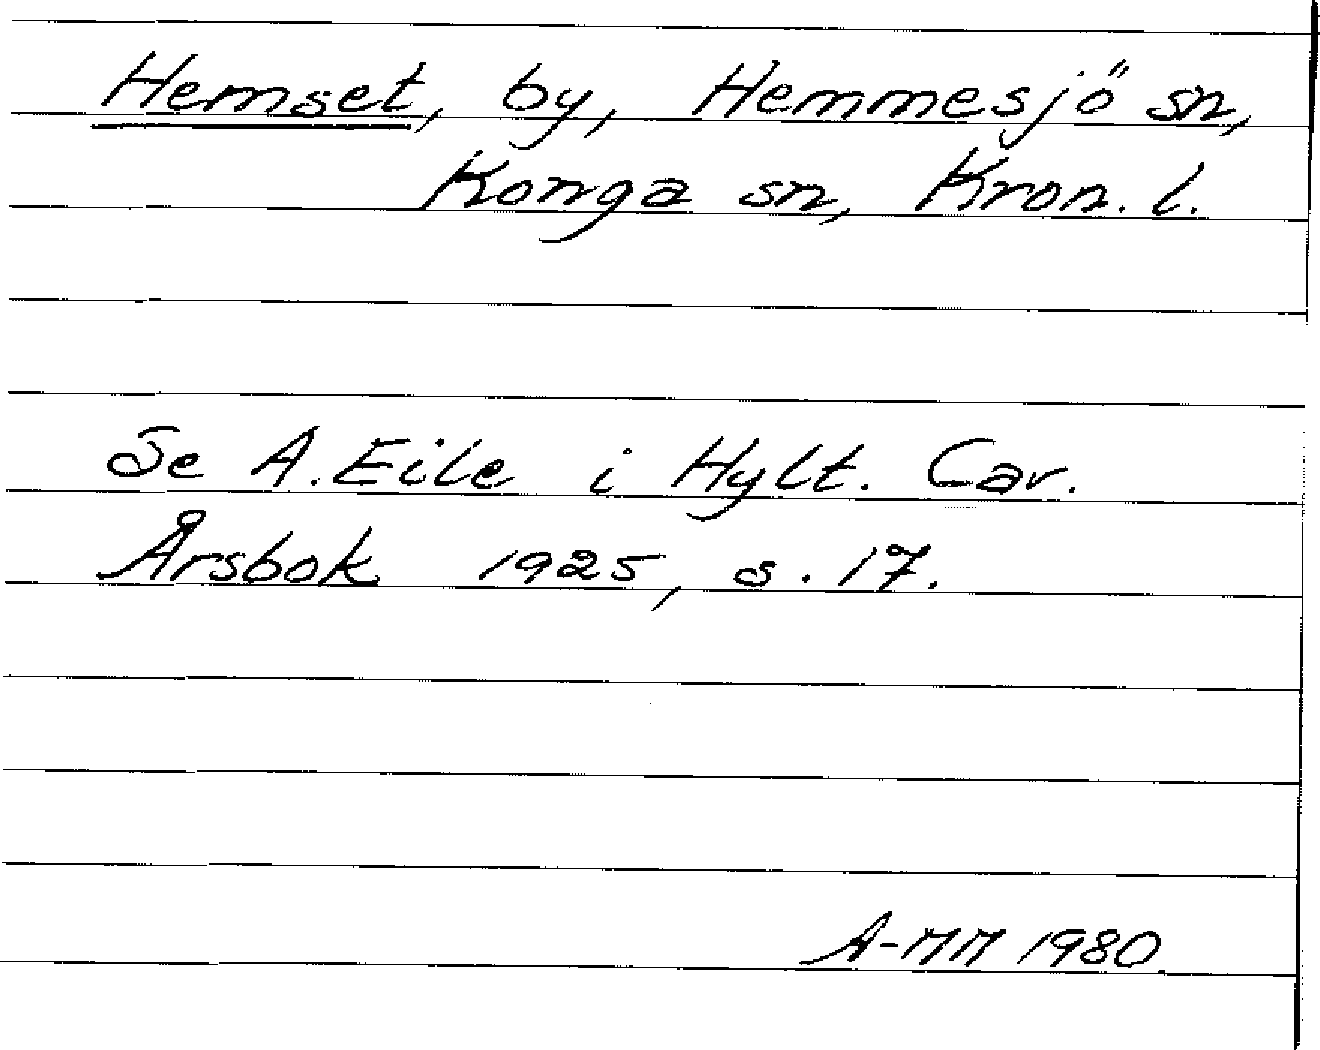 Hemset, by, Hemmesjö sn,
Konga sn, Kron. l.
Se A. Eile i Hylt. Cav.
Årsbok 1925, s. 17.
A-MM 1980